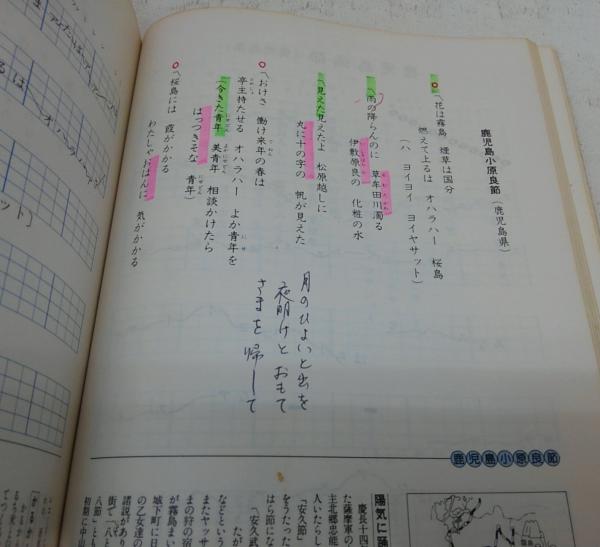 鹿児島小原良節（鹿児島県）
〽花は霧島 煙草は国分
燃えて上るは オハラハー 桜島
（ハ ヨイヨイ ヨイヤサット）
〽雨の降らんのに 草牟田川濁る
伊敷原良の 化粧の水
〽見えた見えたよ 松原越しに
丸に十の字の 帆が見えた
〽おけさ 働け来年の春は
亭主持たせる オハラハー よか青年を
（今きた青年 美青年 相談かけたら
はっつきそな 青年）
〽桜島には 霞がかかる
わたしゃおはんに 気がかかる
月のひよいと出を
夜明けとおもて
さまを帰して
鹿児島小原良節
陽気に踊
慶長十四
た薩摩軍の
人いたらし
主北郷忠能
「安久節」
をうたった
はら節にな
「安久武
たが
などという
またヤッサ
まの狩の宿
が霧島まい
城下町に日
の乙女達の
諸説があり
街で「八と
八節」とも
初期に中山